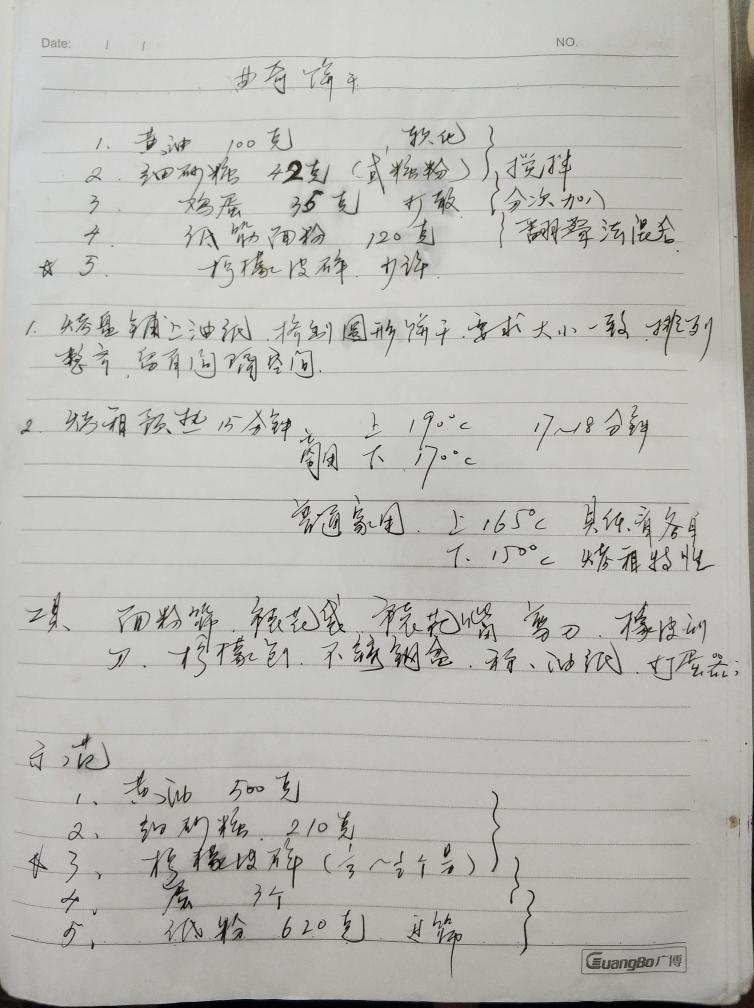 Date: / /
NO.
曲奇饼干
1. 黄油 100克 , 软化
2. 细砂糖 42克 (或糖粉) , 搅拌
3 鸡蛋 35克 打散 分次加入
4. 低筋面粉 120克 翻拌法混合
☆ 5. 柠檬皮碎 少许.
1. 烤盘铺上油纸. 挤制圆形饼干. 要求大小一致. 排列
整齐. 留有间隔空间.
2. 烤箱预热15分钟 上 190°C 17~18分钟
商用 下 170°C
普通家用. 上 165°C 具体看各自
下. 150°C 烤箱特性
工具 面粉筛. 裱花袋. 裱花嘴 剪刀. 橡皮刮
刀. 柠檬刨. 不锈钢盆. 秤、油纸. 打蛋器;
示范
1、黄油 500克
2、细砂糖. 210克
☆ 3、柠檬皮碎
4、蛋 3个
5、低粉 620克 过筛
GuangBo广博